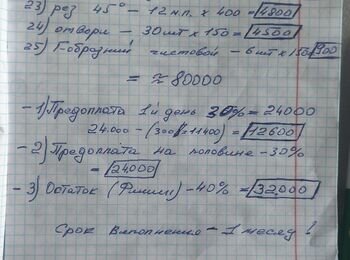 23) рез 45° – 12 м.п. х 400 = 4800
24) отверм – 30 шт х 150 = 4500
25) Г образний чистовой – 6 шт х 150 = 900
= ≈ 80000
– 1) Предоплата 1й день 30% = 24000
24.000 – (300$ = 11400) = 12600
– 2) Предоплата на половине – 30%
= 24000
– 3) Остаток (Финиш) – 40% = 32,000
Срок виполнения – 1 месяц!